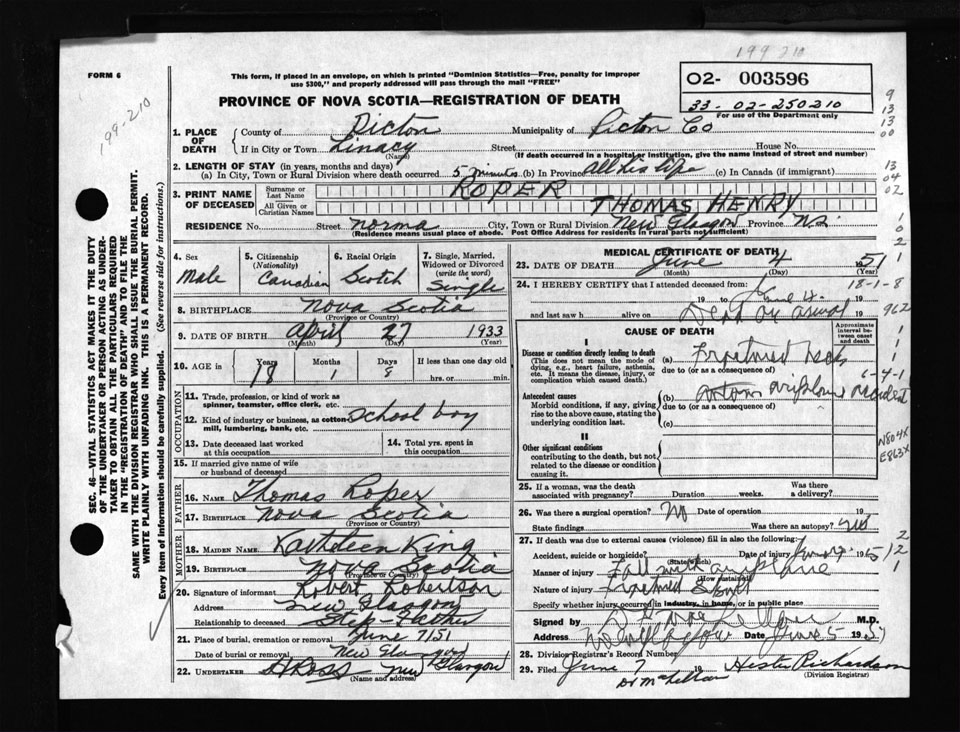 199 210
FORM 6
This form, if placed in an envelope, on which is printed "Dominion Statistics—Free, penalty for improper
use $300," and properly addressed will pass through the mail "FREE"
02- 003596
33-02-250210
For use of the Department only
PROVINCE OF NOVA SCOTIA—REGISTRATION OF DEATH
199-210
SEC. 46—VITAL STATISTICS ACT MAKES IT THE DUTY
OF THE UNDERTAKER OR PERSON ACTING AS UNDER-
TAKER TO OBTAIN ALL THE PARTICULARS REQUIRED
IN THE "REGISTRATION OF DEATH" AND TO FILE THE
SAME WITH THE DIVISION REGISTRAR WHO SHALL ISSUE THE BURIAL PERMIT.
WRITE PLAINLY WITH UNFADING INK. THIS IS A PERMANENT RECORD.
Every item of information should be carefully supplied. (See reverse side for instructions.)
1. PLACE OF DEATH County of Pictou Municipality of Pictou Co
If in City or Town Linacy Street House No.
(Name) (If death occurred in a hospital or institution, give the name instead of street and number)
2. LENGTH OF STAY (in years, months and days)
(a) In City, Town or Rural Division where death occurred 5 minutes (b) In Province all his life (c) In Canada (if immigrant)
3. PRINT NAME OF DECEASED Surname or Last Name ROPER
All Given or Christian Names THOMAS HENRY
RESIDENCE No. Street Norma City, Town or Rural Division New Glasgow Province N.S.
(Residence means usual place of abode. Post Office Address for residents in rural parts not sufficient)
4. Sex Male
5. Citizenship (Nationality) Canadian
6. Racial Origin Scotch
7. Single, Married, Widowed or Divorced (write the word) Single
8. BIRTHPLACE Nova Scotia
(Province or Country)
9. DATE OF BIRTH April 27 1933
(Month) (Day) (Year)
10. AGE in Years Months Days If less than one day old
18 1 8 hrs. or min.
OCCUPATION
11. Trade, profession, or kind of work as
spinner, teamster, office clerk, etc.
12. Kind of industry or business, as cotton- school boy
mill, lumbering, bank, etc.
13. Date deceased last worked
at this occupation
14. Total yrs. spent in
this occupation
15. If married give name of wife
or husband of deceased
FATHER
16. NAME Thomas Roper
17. BIRTHPLACE Nova Scotia
(Province or Country)
MOTHER
18. MAIDEN NAME Kathleen King
19. BIRTHPLACE Nova Scotia
(Province or Country)
20. Signature of informant Robert Robertson
Address New Glasgow
Relationship to deceased Step-Father
21. Place of burial, cremation or removal June 7/51
Date of burial or removal New Glasgow
22. UNDERTAKER H Ross New Glasgow
(Name and address)
MEDICAL CERTIFICATE OF DEATH
23. DATE OF DEATH June 4 51
(Month) (Day) (Year)
24. I HEREBY CERTIFY that I attended deceased from: 18-1-8
19 to June 4 19
and last saw h alive on Dead on 19 962
CAUSE OF DEATH
Approximate interval between onset and death
I
Disease or condition directly leading to death (a) Fractured
(This does not mean the mode of
dying, e.g., heart failure, asthenia,
etc. It means the disease, injury, or
complication which caused death.)
due to (or as a consequence of)
6-4-1
Antecedent causes (b) airplane accident
Morbid conditions, if any, giving
rise to the above cause, stating the
underlying condition last.
due to (or as a consequence of)
(c)
II
Other significant conditions
contributing to the death, but not
related to the disease or condition
causing it.
N804X
E863X
25. If a woman, was the death
associated with pregnancy? Duration weeks. Was there
a delivery?
26. Was there a surgical operation? No Date of operation 19
State findings Was there an autopsy?
27. If death was due to external causes (violence) fill in also the following:
Accident, suicide or homicide? Date of injury 19
(State which)
Manner of injury Fall with airplane
(How sustained)
Nature of injury Fractured
Specify whether injury occurred in industry, in home, or in public place
Signed by M.D.
Address New Glasgow Date June 5 1951
28. Division Registrar's Record Number
29. Filed June 7 19 Hester Richardson
(Division Registrar)
Dr McLellan
9
13
13
00
13
04
02
1
0
2